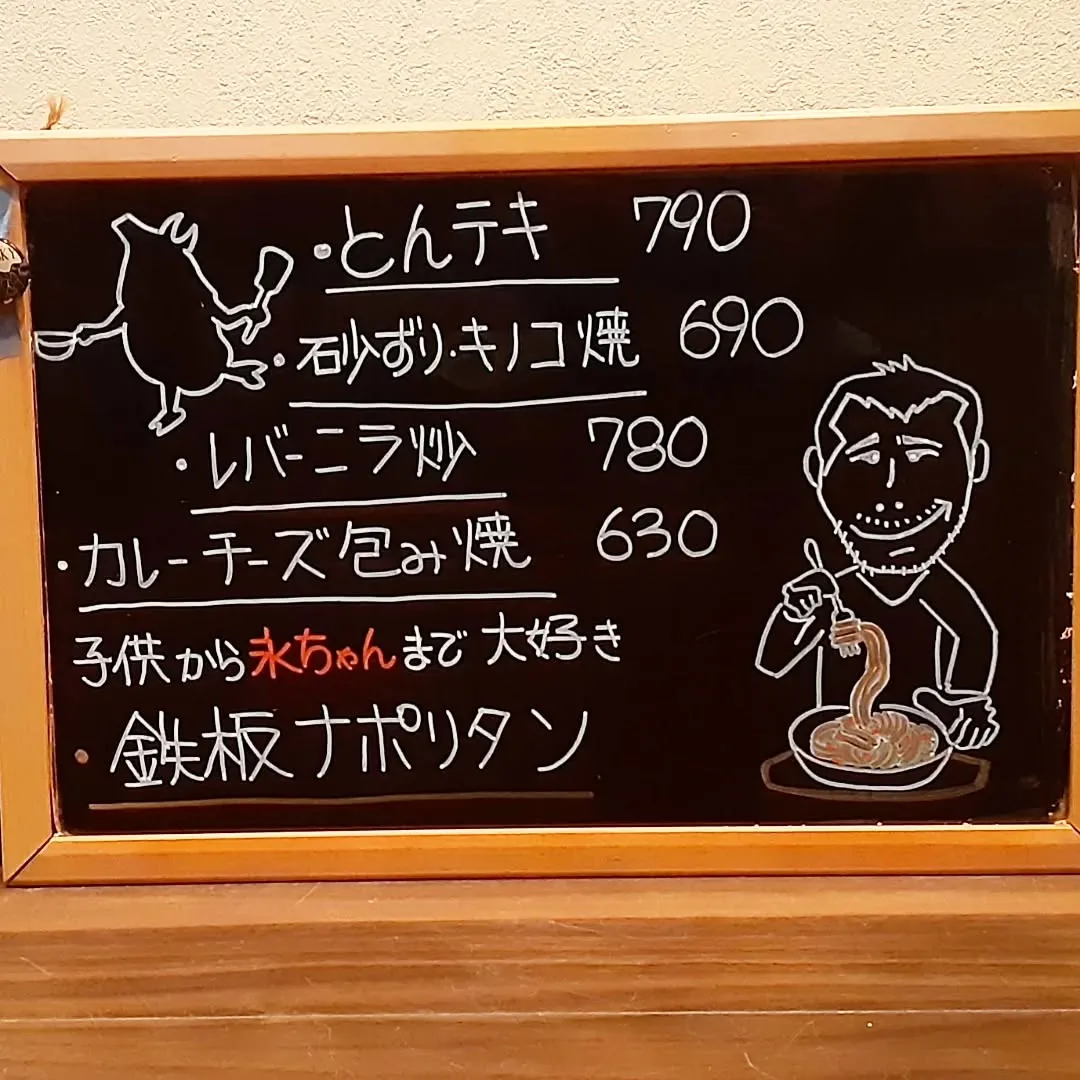 ・とんテキ 790
・砂ずり・キノコ焼 690
・レバーニラ炒 780
・カレーチーズ包み焼 630
子供から永ちゃんまで大好き
・鉄板ナポリタン